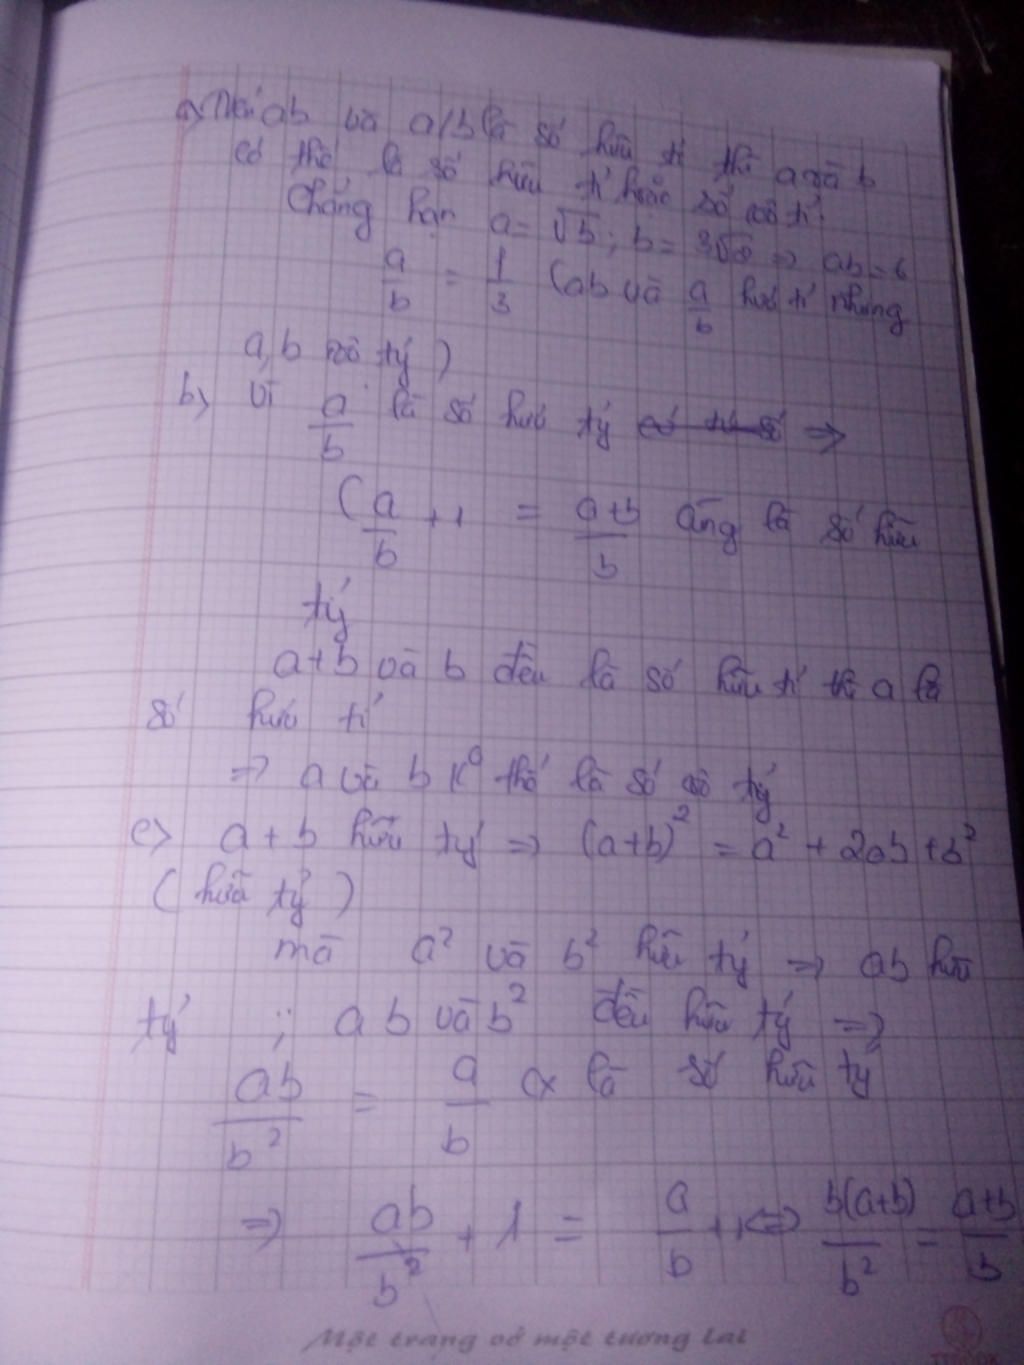 a) Nếu ab và a/b là số hữu tỉ thì a và b
có thể là số hữu tỉ hoặc số vô tỉ.
Chẳng hạn a = √ ; b = 3√ => ab = 6
a/b = 1/3 (ab và a/b hữu tỉ nhưng
a, b vô tỷ)
b) vì a/b là số hữu tỷ =>
(a/b + 1 = a+b/b là số hữu
tỷ
a+b và b đều là số hữu tỉ thì a là
số hữu tỉ
=> a và b k° thể là số vô tỷ
c) a + b hữu tỷ => (a+b)² = a² + 2ab + b²
(hữu tỷ)
mà a² và b² hữu tỷ => ab hữu
tỷ ; ab và b² đều hữu tỷ =>
ab/b² = a/b là số hữu tỷ
=> ab/b² + 1 = a/b + 1 <=> b(a+b)/b² = a+b/b
Một trang vở một tương lai